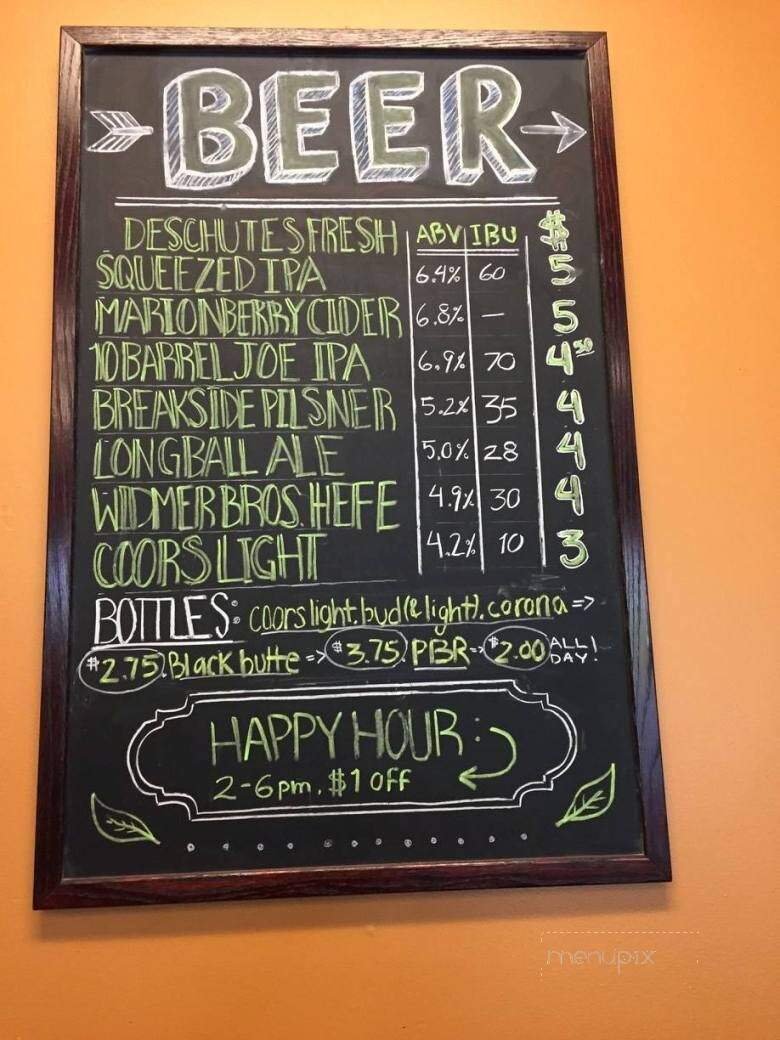 BEER
DESCHUTES FRESH ABV IBU $
SQUEEZED IPA 6.4% 60 5
MARIONBERRY CIDER 6.8% — 5
10 BARREL JOE IPA 6.9% 70 4 50
BREAKSIDE PILSNER 5.2% 35 4
LONGBALL ALE 5.0% 28 4
WIDMER BROS. HEFE 4.9% 30 4
COORS LIGHT 4.2% 10 3
BOTTLES: coors light, bud (& light), corona =>
$2.75. Black butte => $3.75. PBR => $2.00 ALL DAY!
HAPPY HOUR:
2-6pm. $1 off
menupix